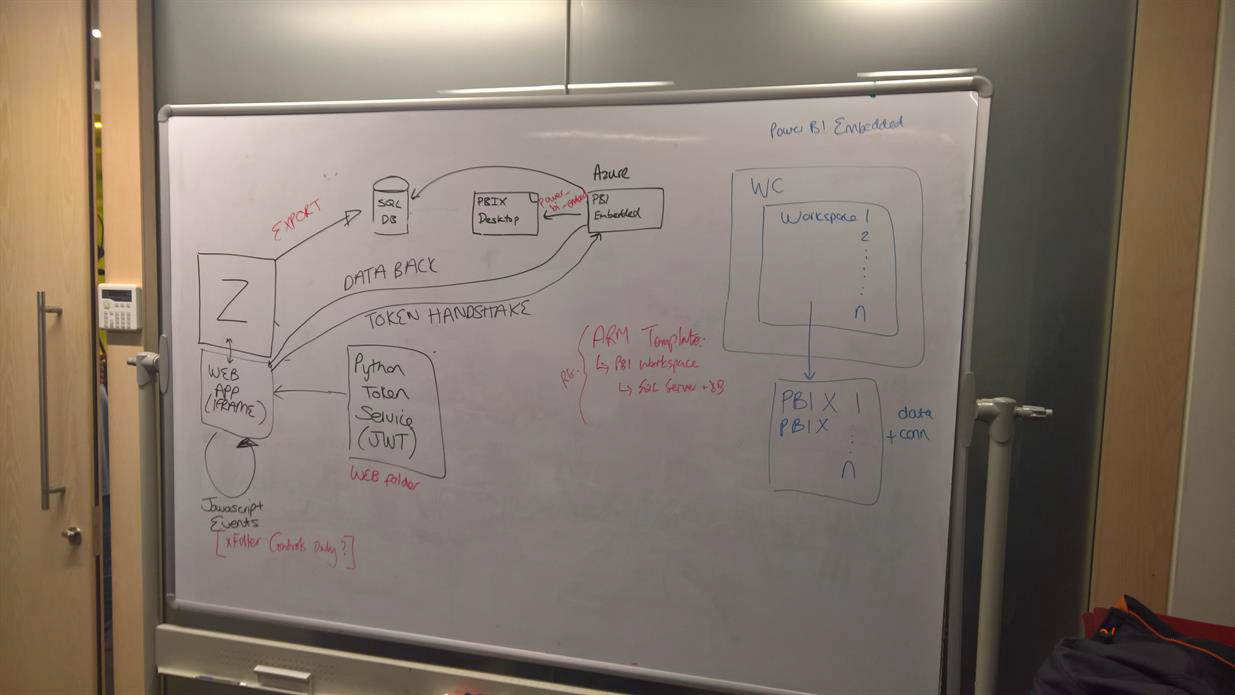 Power BI Embedded
Azure
SQL
DB
PBIX
Desktop
Power_
bi_embed
PBI
Embedded
EXPORT
Z
DATA BACK
TOKEN HANDSHAKE
WEB
APP
(IFRAME)
Python
Token
Service
(JWT)
WEB folder
Javascript
Events
Controls Only?]
ARM Template
↳ PBI Workspace
↳ SQL Server + DB
WC
Workspace 1
2
n
PBIX 1
PBIX
n
data
+ conn